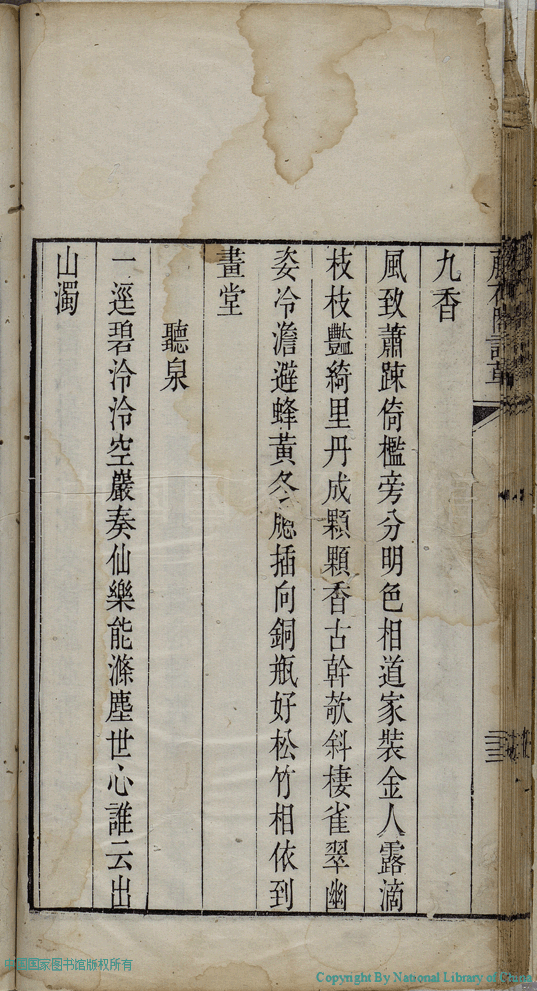 九香
風致蕭踈倚檻旁分明色相道家裝金人露滴
枝枝豔綺里丹成顆顆香古幹欹斜棲雀翠幽
姿冷澹避蜂黃冬心插向銅瓶好松竹相依到
畫堂
聽泉
一逕碧泠泠空巖奏仙樂能滌塵世心誰云出
山濁
中国国家图书馆版权所有
Copyright By National Library of China